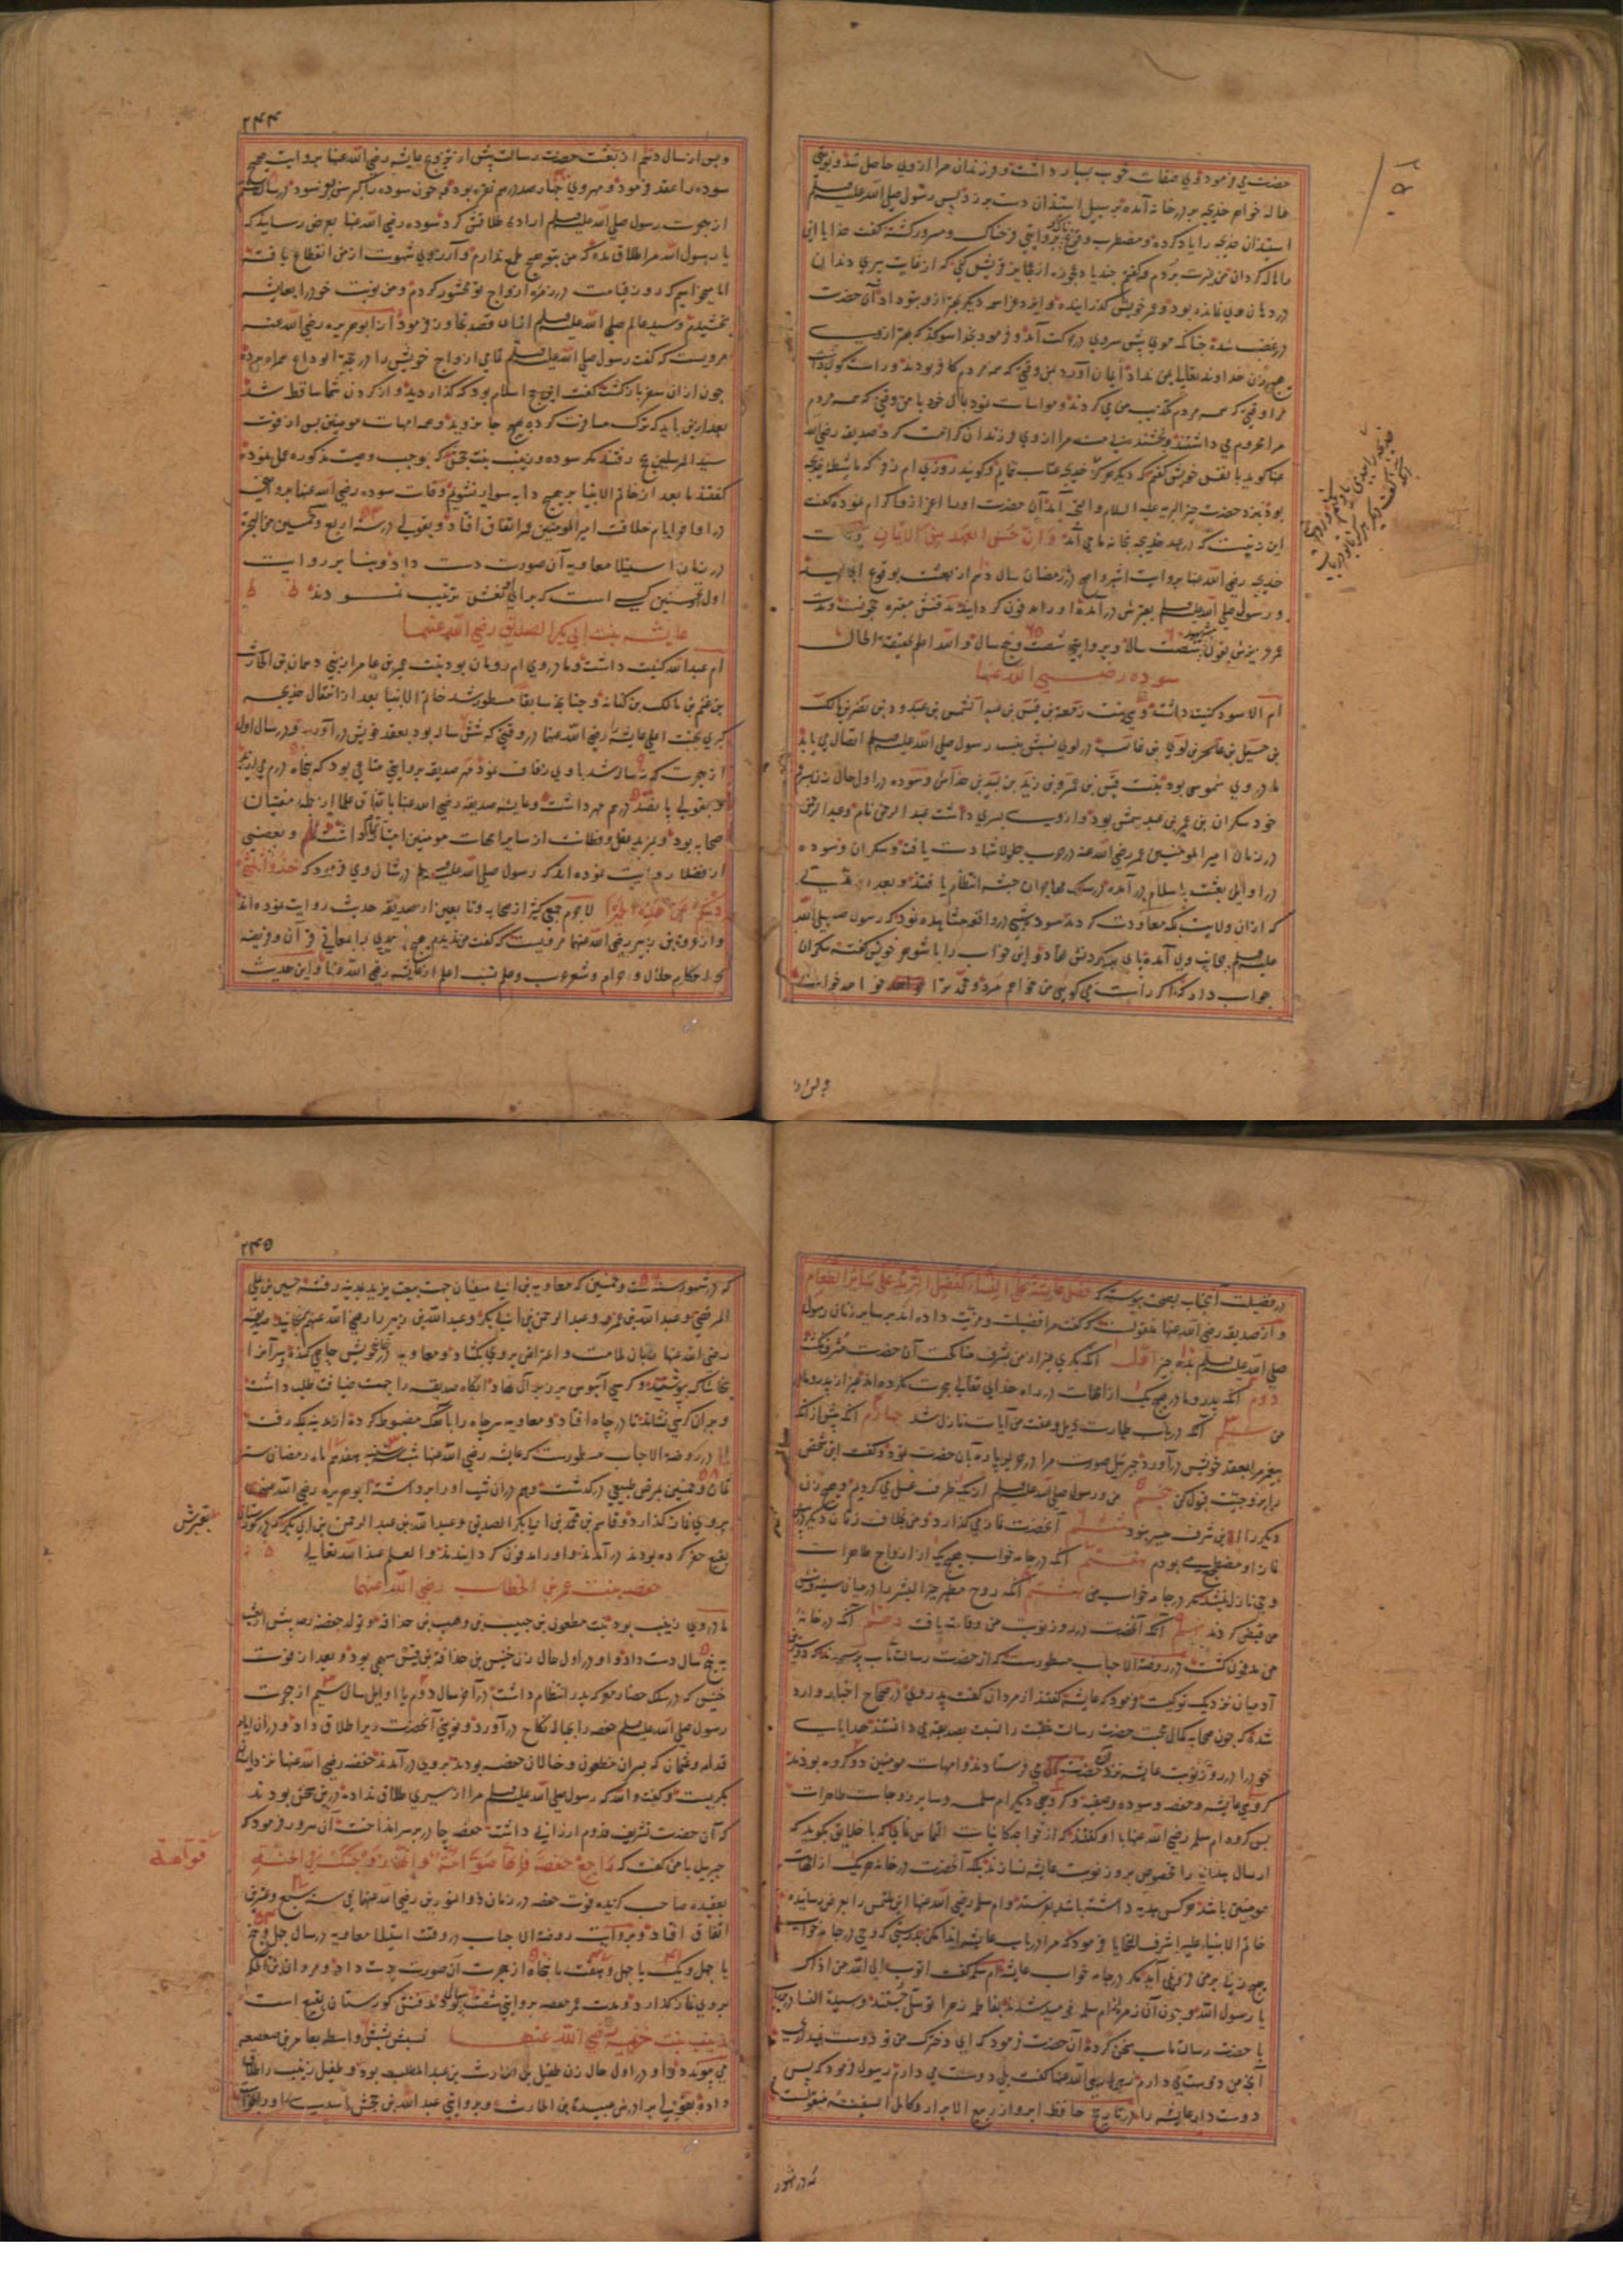 حضرت می فرمود وی صفات خوب بسیار داشت و فرزندان مرا از وی حاصل شد و نوبتی
هاله خواهر خدیجه بر در خانه آمده بر سبیل استیذان دست بر در زد پس رسول صلی الله علیه وسلم
استیذان خدیجه را یاد کرده و مضطرب و بروایتی فرحناک و مسرور گشته گفت خدایا این
را هاله گردان من غیرت بردم و گفتم چند یاد عجوزه از عجایز قریش کنی که از غایت پیری دندان
در دهان وی نمانده بود و عمر خویش گذرانیده و ایزد عز اسمه دیگر بهتر از و بتو داد آن حضرت
در غضب شده چنانکه موی پیش سر وی در حرکت آمد و فرمود بخدا سوگند که بهتر از وی
هیچ زن خداوند تعالی بمن نداد ایمان آورد بمن وقتی که همه مردم کافر بودند و راست گوی داشت
مرا وقتی که همه مردم تکذیب من می کردند و مواسات نمود بمال خود با من وقتی که همه مردم
مرا محروم می داشتند و بخشید مرا از وی فرزندان کرامت کرد صدیقه رضی الله
عنها گوید با نفس خویش گفتم که دیگر هرگز خدیجه عتاب نمایم و گویند روزی ام زفر که ماشطه خدیجه
بود نزد حضرت خیر البریه علیه السلام والتحیه آمد آن حضرت او را اعزاز و اکرام نموده گفت
این زنیست که در عهد خدیجه بخانه ما می آمد وان حسن العهد من الایمان وفات
خدیجه رضی الله عنها بروایت اشهر و اصح در رمضان سال دهم از بعثت بوقوع انجامید
و رسول صلی الله علیه وسلم بقبرش در آمده او را مدفون گردانید مدفنش مقبره حجونست و مدت
عمر عزیزش بقول شصت سال و بروایتی شصت و پنج سال والله اعلم بحقیقة الحال
سوده رضی الله عنها
ام الاسود کنیت داشت وی بنت زمعه بن قیس بن عبد الشمس بن عبد ود بن نصر بن مالک
بن حسیل بن عامر بن لوی بن غالب در لوی نسبش بنسب رسول صلی الله علیه وسلم اتصال می یابد
مادر وی شموس بود بنت قیس بن عمرو بن زید بن لبید بن خداش و سوده در اول حال زن پسر عم
خود سکران بن عمرو بن عبد شمس بود و از وی پسری داشت عبد الرحمن نام و عبد الرحمن
در زمان امیر المومنین عمر رضی الله عنه در حرب جلولا شهادت یافت و سکران و سوده
در اوایل بعثت باسلام در آمده در سلک مهاجران حبشه انتظام یافتند و بعد از مدتی
که از آن ولایت بمکه معاودت کردند سوده شبی در واقعه مشاهده نمود که رسول صلی الله
علیه وسلم بجانب وی آمده پای بر گردنش نهاد و این خواب را با شوهر خویش گفت سکران
جواب داد که اگر راست می گویی من خواهم مرد و محمد ترا خواهد خواست
و پس از
۲۴۴
و پس از سال دهم از بعثت حضرت رسالت پیش از تزویج عایشه رضی الله عنها بروایت صحیح
سوده را عقد فرمود و مهر وی چهار صد درهم نقره بود و چون سوده را کبر سن بود در سال هشتم
از هجرت رسول صلی الله علیه وسلم اراده طلاقش کرد سوده رضی الله عنها بعرض رسانید که
یا رسول الله مرا طلاق مده که من بتو هیچ طمع ندارم و آرزوی شهوت از من انقطاع یافته
اما میخواهم که روز قیامت در زمره ازواج تو محشور گردم و من نوبت خود را بعایشه
بخشیدم و سید عالم صلی الله علیه وسلم از آن قصد تجاوز فرمود از ابو هریره رضی الله عنه
مرویست که گفت رسول صلی الله علیه وسلم تمامی ازواج خویش را در حجة الوداع همراه برد
چون از آن سفر بازگشت گفت این حج اسلام بود که گذاردید و از گردن شما ساقط شد
بعد از این باید که ترک مسافرت کرده هیچ جا نروید و همه امهات مومنین پس از فوت
سید المرسلین بحج رفتند مگر سوده و زینب بنت جحش که بموجب وصیت مذکوره عمل نموده
گفتند ما بعد از خاتم الانبیا بر هیچ دابه سوار نشویم وفات سوده رضی الله عنها بروایت
در اواخر ایام خلافت امیر المومنین عمر اتفاق افتاد و بقولی در سنه اربع و خمسین من الهجرة
در زمان استیلاء معاویه آن صورت دست داد و بنا بر روایت
اول نخستین کسی است که برای نعش ترتیب نمودند
عایشه بنت ابی بکر الصدیق رضی الله عنهما
ام عبد الله کنیت داشت و مادر وی ام رومان بود بنت عمیر بن عامر از بنی دهمان بن الحارث
بن غنم بن مالک بن کنانه و چنانچه سابقا مسطور شد خاتم الانبیا بعد از انتقال خدیجه
کبری بجنت اعلی عایشه را رضی الله عنها در وقتی که شش ساله بود بعقد خویش در آورد و در سال اول
از هجرت که نه ساله شد با وی زفاف نمود مهر صدیقه بروایتی متاعی بود که پنجاه درم می ارزید
و بقولی پانصد درهم مهر داشت و عایشه صدیقه رضی الله عنها باتفاق علما از جمله مفتیان
صحابه بود و بمزید عقل و فطانت از سایر امهات مومنین امتیاز تمام داشت و بعضی
از فضلا روایت نموده اند که رسول صلی الله علیه وسلم در شان وی فرمود که خذوا ثلثی
دینکم عن هذه الحمیرا لاجرم جمع کثیر از صحابه و تابعین از صدیقه حدیث روایت نموده اند
و از عروة بن زبیر رضی الله عنهما مرویست که گفت من ندیدم هیچ احدی را بمعانی قرآن و فریضه
و احکام حلال و حرام و شعر عرب و علم نسب اعلم از عایشه رضی الله عنها و این حدیث
در فضیلت آنجناب بصحت پیوسته که فضل عایشة علی النساء کفضل الثرید علی سایر الطعام
و از صدیقه رضی الله عنها منقولست که گفت مرا فضیلت و مزیت داده اند بر سایر زنان رسول
صلی الله علیه وسلم بده چیز اول آنکه بکری بغیر از من بشرف مناکحت آن حضرت مشرف نگشت
دوم آنکه پدر و مادر هیچ یک از امهات در راه خدای تعالی هجرت نکرده اند بغیر از پدر و مادر
من سیم آنکه در باب طهارت ذیل و عفت من آیات نازل شد چهارم آنکه پیش از آنکه
پیغمبر مرا بعقد خویش در آورد جبرئیل صورت مرا در حریر پاره بآن حضرت نمود و گفت این شخص
را بزوجیت قبول کن پنجم من و رسول صلی الله علیه وسلم از یک ظرف غسل می کردیم و هیچ زن
دیگر را این شرف میسر نبود ششم آنحضرت نماز می گذارد و من بخلاف زنان دیگر در پیش
نماز او مضطجع می بودم هفتم آنکه در جامه خواب هیچ یک از ازواج طاهرات
وحی نازل نشد مگر در جامه خواب من هشتم آنکه روح مطهر خیر البشر را در میان سینه من
قبض کردند نهم آنکه آنحضرت در روز نوبت من وفات یافت دهم آنکه در خانه
من مدفون گشت در روضة الاحباب مسطورست که از حضرت رسالت مآب پرسیدند که دوستترین
آدمیان نزدیک تو کیست فرمود که عایشه گفتند از مردان گفت پدر وی در صحاح اخبار وارد
شده که چون صحابه کمال محبت حضرت رسالت منقبت را نسبت بصدیقه می دانستند هدایای
خود را در روز نوبت عایشه نزد آن حضرت می فرستادند و امهات مومنین دو گروه بودند
گروهی عایشه و حفصه و سوده و صفیه و گروهی دیگر ام سلمه و سایر زوجات طاهرات
پس گروه ام سلمه رضی الله عنها با او گفتند که از خواجه کاینات التماس نمای که با خلایق بگوید که
ارسال هدایا را مخصوص بروز نوبت عایشه نسازند بلکه آنحضرت در خانه هر یک از امهات
مومنین باشد هر کس هدیه داشته باشد بفرستد و ام سلمه رضی الله عنها این ملتمس را بعرض رسانیده
خاتم الانبیاء علیه اشرف التحایا فرمود که مرا در باب عایشه ایذا مکن بدرستی که وحی در جامه خواب
هیچ زنی بر من فرو نمی آید مگر در جامه خواب عایشه ام سلمه گفت اتوب الی الله من اذاک
یا رسول الله و چون آن زمره از ام سلمه نومید شدند بفاطمه زهرا توسل جستند و سیدة النسا در این باب
با حضرت رسالت مآب سخن کرده آن حضرت فرمود که ای دخترک من تو دوست نمیداری
آنچه من دوست می دارم زهرا رضی الله عنها گفت بلی دوست می دارم رسول فرمود که پس
دوست دار عایشه را در تاریخ حافظ ابرو از ربیع الابرار و کامل السفینه منقولست
که در شهور
۲۴۵
که در شهور سنه ست و خمسین که معاویه بن ابی سفیان جهت بیعت یزید بمدینه رفت حسین بن علی
المرتضی و عبد الله بن عمر و عبد الرحمن بن ابی بکر و عبد الله بن زبیر را رضی الله عنهم برنجانید صدیقه
رضی الله عنها زبان بملامت و اعتراض بر وی بگشاد و معاویه در خانه خویش چاهی کنده سر آنرا
بخاشاک پوشیده و کرسی آبنوس بر زبر آن نهاد آنگاه صدیقه را جهت ضیافت طلب داشت
و بر آن کرسی نشاند تا در چاه افتاد و معاویه سر چاه را بآهک مضبوط کرده از مدینه بمکه رفت
اما در روضة الاحباب مسطورست که عایشه رضی الله عنها شب سه شنبه هفدهم ماه رمضان سنه
ثمان و خمسین بمرض طبیعی در گذشت و هم در آن شب او را برداشته ابو هریره رضی الله عنه
بر وی نماز گذارد و قاسم بن محمد بن ابی بکر الصدیق و عبد الله بن عبد الرحمن بن ابی بکر که در گورستان
بقیع حفر کرده بودند در آمدند و او را مدفون گردانیدند والعلم عند الله تعالی
حفصه بنت عمر بن الخطاب رضی الله عنهما
مادر وی زینب بود بنت مطعون بن حبیب بن وهب بن حذافه و تولد حفصه رضه پیش از بعثت
به پنج سال دست داد و او در اول حال زن خنیس بن حذافة بن قیس سهمی بود و بعد از فوت
خنیس که در سلک حضار معرکه بدر انتظام داشت در آخر سال دوم یا اوایل سال سیم از هجرت
رسول صلی الله علیه وسلم حفصه را بحباله نکاح در آورد و نوبتی آنحضرت ویرا طلاق داد و در آن ایام
قدامه و عثمان که پسران مظعون و خالان حفصه بودند بر وی در آمدند حفصه رضی الله عنها نزد ایشان
بگریست و گفت والله که رسول صلی الله علیه وسلم مرا از سیری طلاق نداده در این سخن بودند
که آن حضرت تشریف قدوم ارزانی داشت حفصه چادر بر سر انداخت آن سرور فرمود که
جبریل با من گفت که راجع حفصة فانها صوامة و انها زوجتک فی الجنة
بعقیده صاحب گزیده فوت حفصه در زمان ذو النورین رضی الله عنهما فی سنه سبع و عشرین
اتفاق افتاد و بروایت روضة الاحباب در وقت استیلاء معاویه در سال چهل و پنج
یا چهل و یک یا چهل و هفت یا پنجاه از هجرت آن صورت دست داد و مروان بن الحکم
بر وی نماز گذارد و مدت عمر حفصه بروایتی شصت سال بود مدفنش گورستان بقیع است
زینب بنت خزیمه رضی الله عنها نسبش بشش واسطه بعامر بن صعصعه
می پیوندد و او در اول حال زن طفیل بن الحارث بن عبد المطلب بود و طفیل زینب را طلاق
داده بقولی برادرش عبیدة بن الحارث و بروایتی عبد الله بن جحش اسدی او را بخواست
بقبرش
قوامة